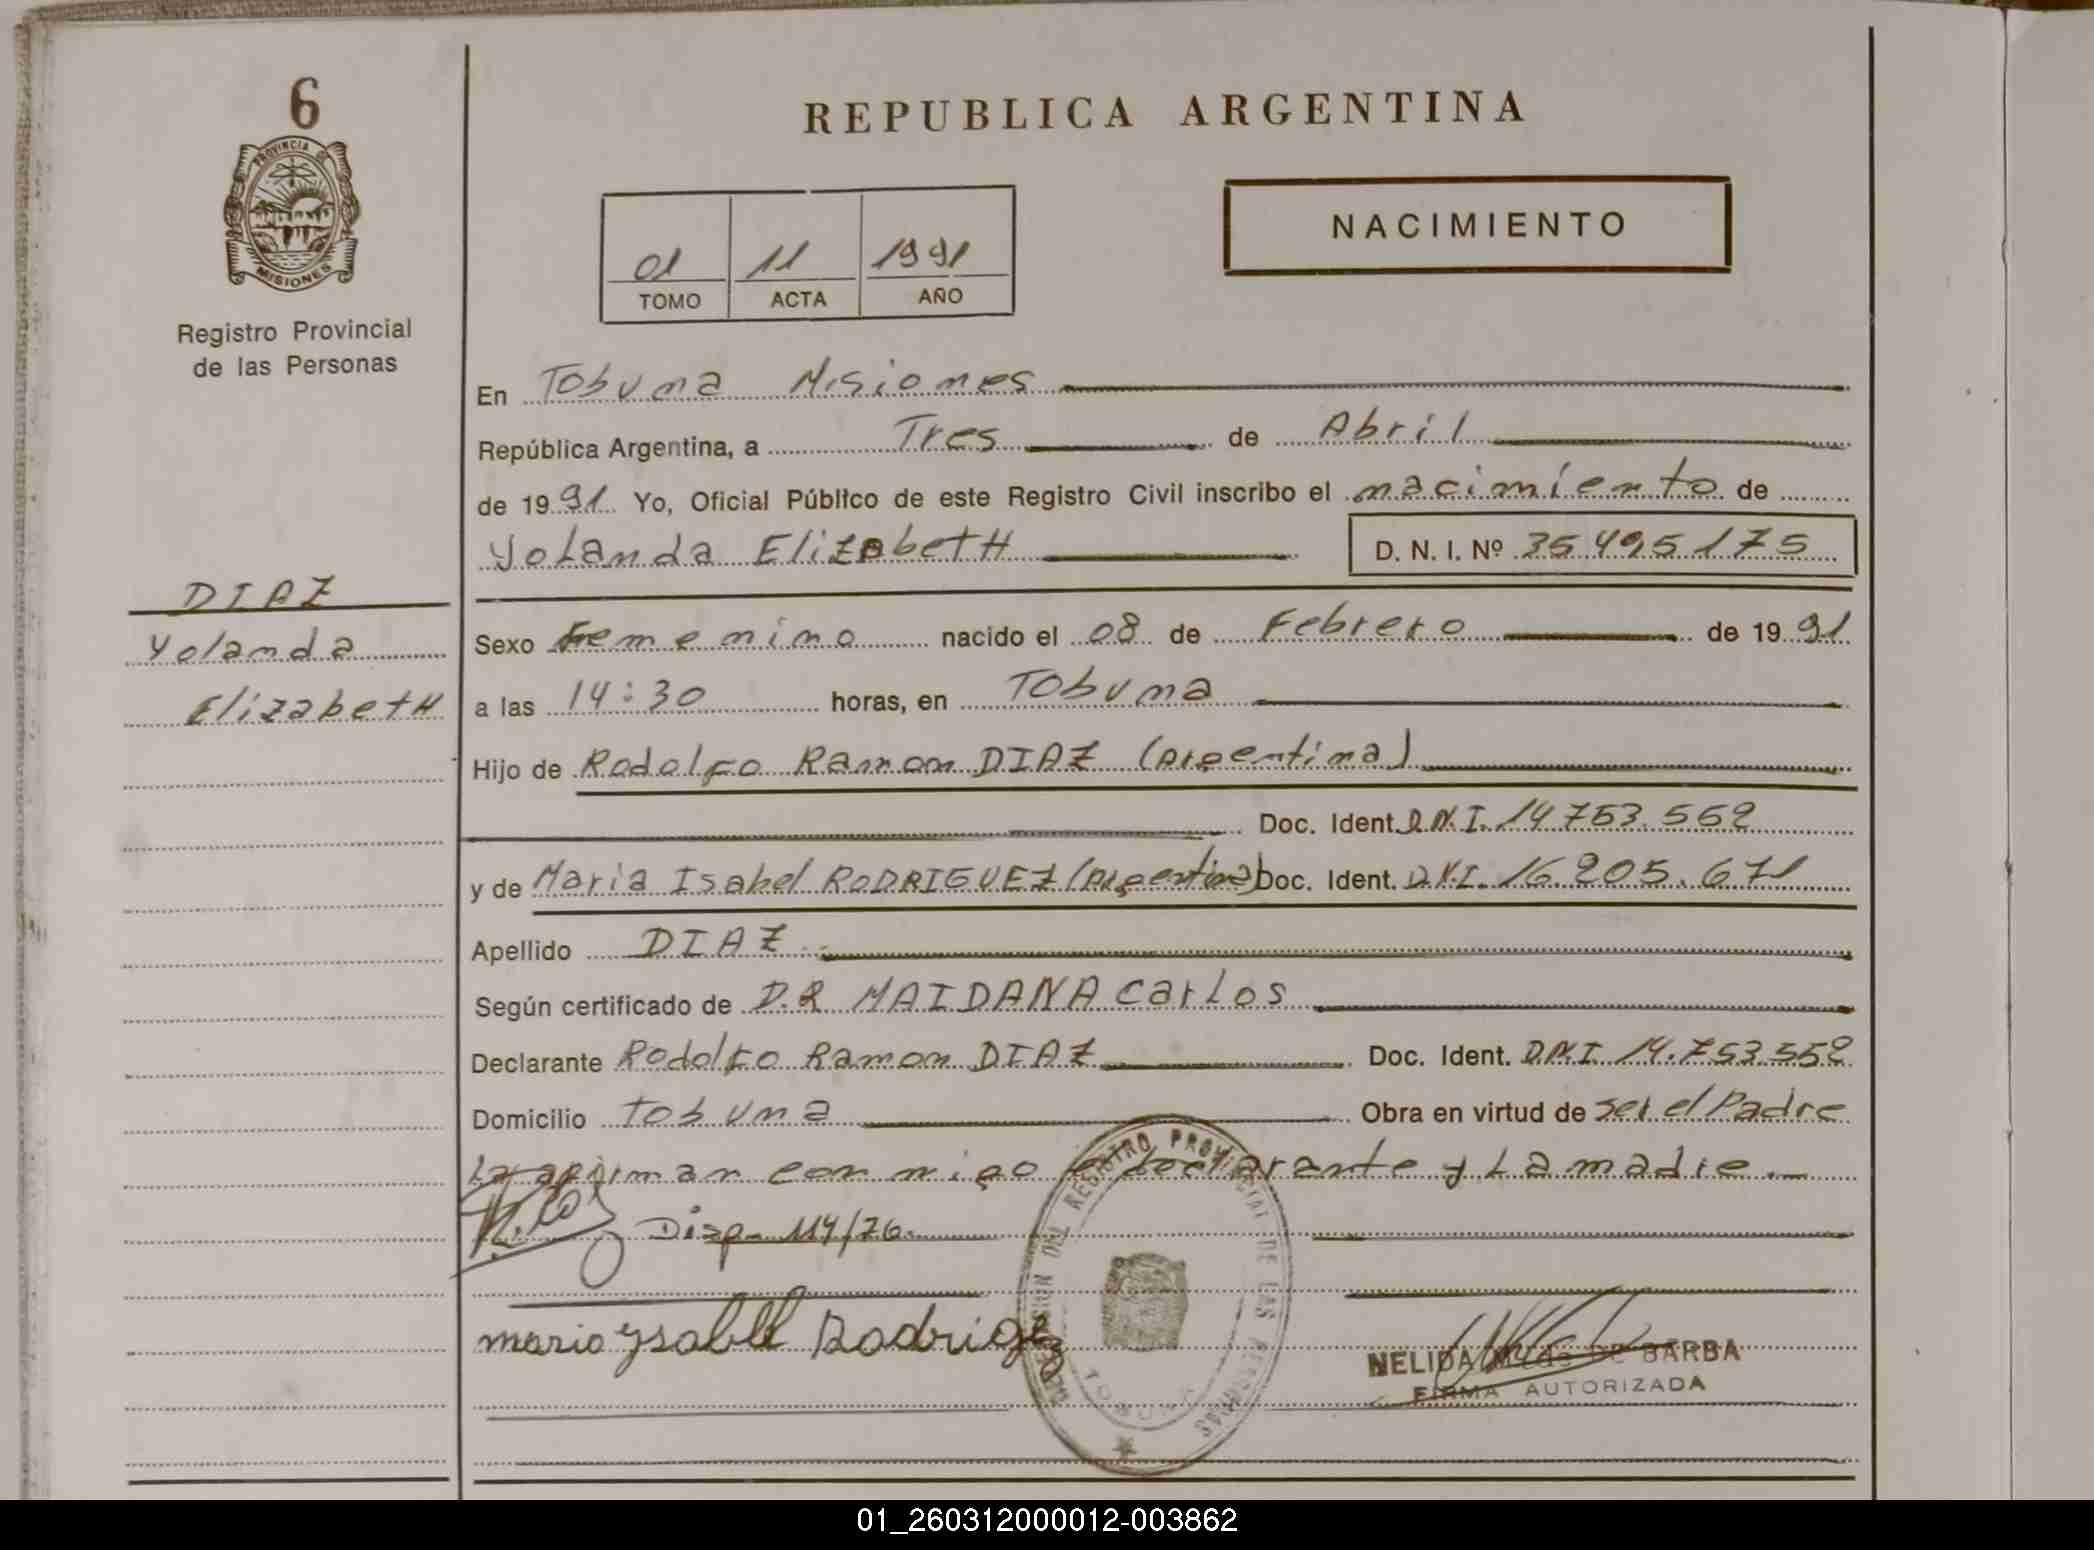 6
PROVINCIA DE
MISIONES
Registro Provincial
de las Personas
DIAZ
Yolanda
ElizabetH
REPUBLICA ARGENTINA
01 11 1991
TOMO ACTA AÑO
NACIMIENTO
En Tobuna Misiones
República Argentina, a Tres de Abril
de 1991 Yo, Oficial Público de este Registro Civil inscribo el nacimiento de
Yolanda ElizabetH D. N. I. Nº 35495175
Sexo Femenino nacido el 08 de Febrero de 1991
a las 14:30 horas, en Tobuna
Hijo de Rodolfo Ramon DIAZ (Argentina)
Doc. Ident. D.N.I. 14 753.552
y de Maria Isabel RODRIGUEZ (Argentina) Doc. Ident. D.N.I. 16 205.671
Apellido DIAZ
Según certificado de D.R MAIDANA Carlos
Declarante Rodolfo Ramon DIAZ Doc. Ident. D.N.I 14.753.552
Domicilio Tobuna Obra en virtud de ser el Padre
La firman conmigo declarante y La madre.
Disp. 114/76.
maria ysabel Rodrigez
REGISTRO PROVINCIAL DE LAS PERSONAS
TOBUNA
NELIDA DE BARBA
FIRMA AUTORIZADA
01_260312000012-003862